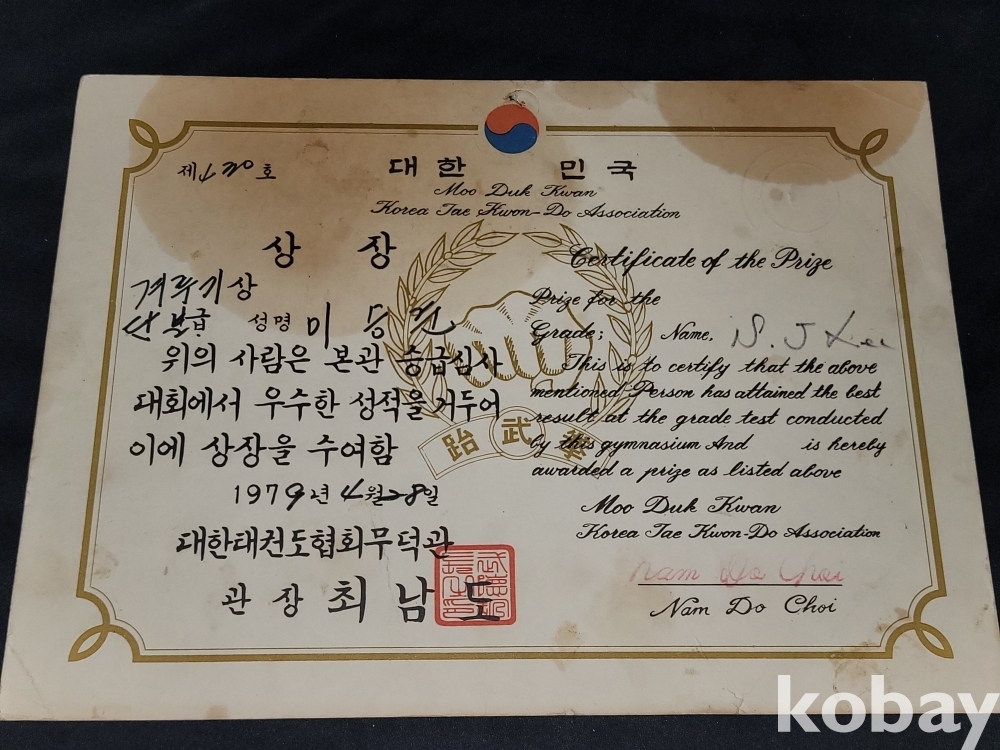 대한 민국
제 430 호
Moo Duk Kwan
Korea Tae Kwon-Do Association
상 장
겨루기상
급 성명 이
위의 사람은 본관 승급심사
대회에서 우수한 성적을 거두어
이에 상장을 수여함
1979년 4월 28일
대한태권도협회무덕관
관장 최남도
Certificate of the Prize
Prize for the
Grade; Name, S. J Lee
This is to certify that the above
mentioned Person has attained the best
result at the grade test conducted
by this gymnasium And is hereby
awarded a prize as listed above
Moo Duk Kwan
Korea Tae Kwon-Do Association
Nam Do Choi
Nam Do Choi
跆 武 拳
kobay